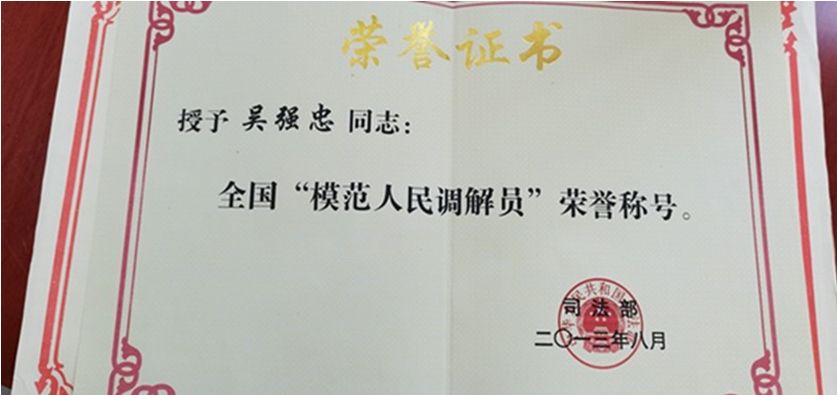 荣誉证书
授予 吴强忠 同志：
全国“模范人民调解员”荣誉称号。
司法部
二〇一三年八月